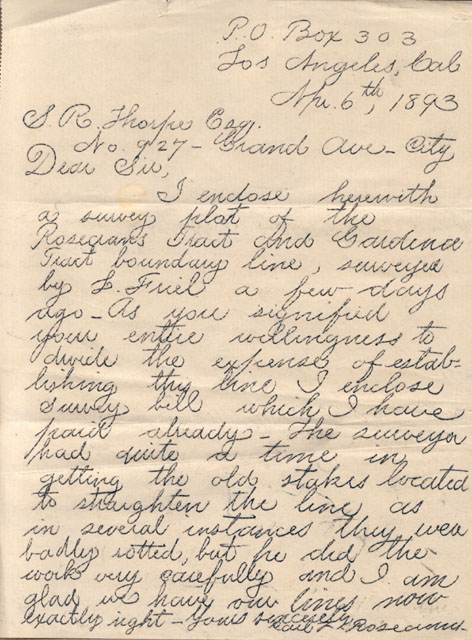 P.O. Box 303
Los Angeles, Cal
Apr. 6th, 1893
S. R. Thorpe Esq.
No. 927 - Grand Ave - City
Dear Sir,
I enclose herewith
a survey plat of the
Rosecrans Tract and Gardena
Tract boundary line, surveyed
by L. Friel a few days
ago - As you signified
your entire willingness to
divide the expense of estab-
lishing this line I enclose
survey bill which I have
paid already - The surveyor
had quite a time in
getting the old stakes located
to straighten the line, as
in several instances they were
badly rotted, but he did the
work very carefully and I am
glad we have our lines now
exactly right - Yours sincerely
Carl F. Rosecrans